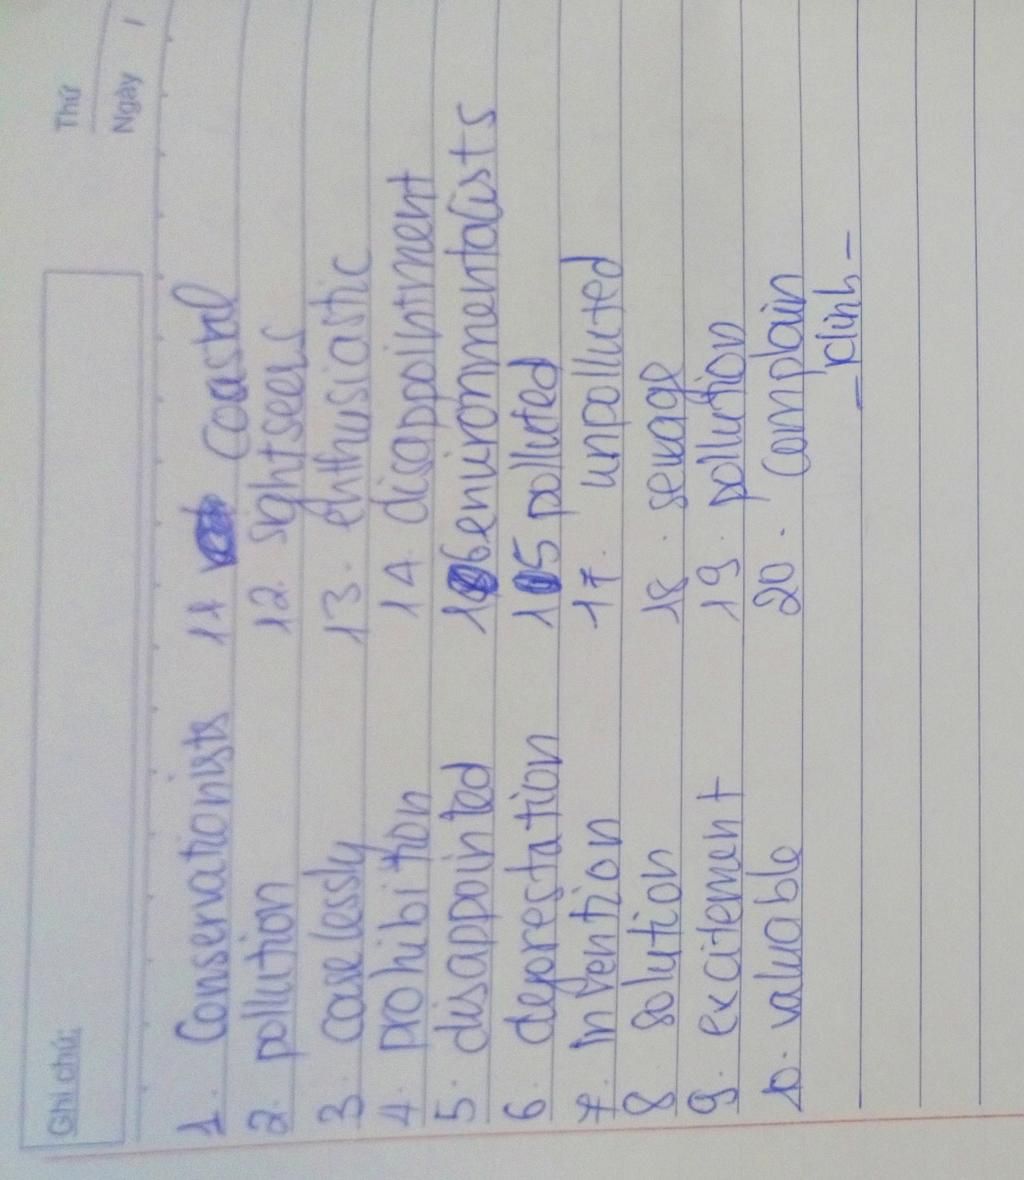 Ghi chú:
Thứ
Ngày
1. Conservationists 11 coastal
2. pollution 12. sightseers
3. carelessly 13. enthusiastic
4. prohibition 14. disappointment
5. disappointed 16 environmentalists
6. deforestation 15 polluted
7. invention 17. unpolluted
8. solution 18. sewage
9. excitement 19. pollution
10. valuable 20. complain